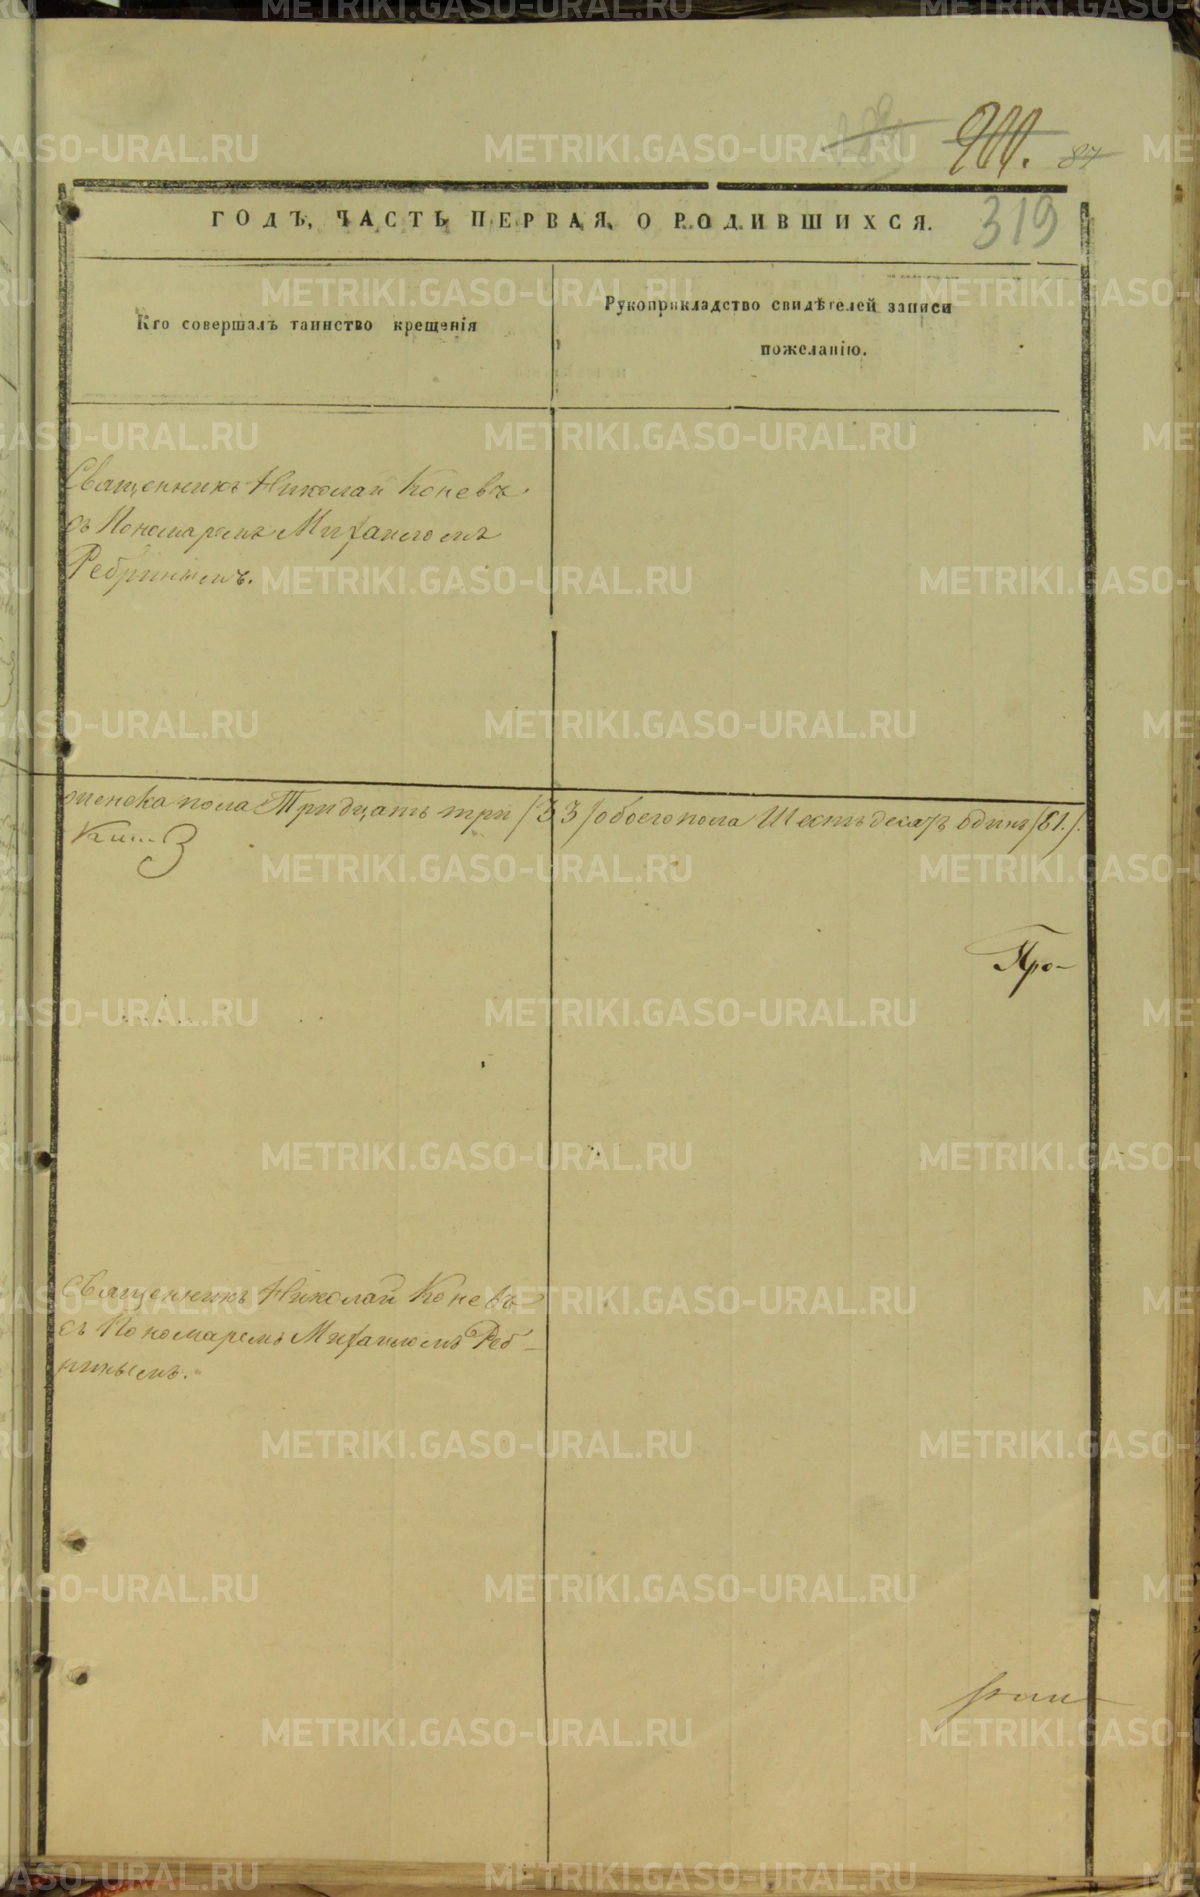 87
319
ГОДЪ, ЧАСТЬ ПЕРВАЯ, О РОДИВШИХСЯ.
Кто совершалъ таинство крещенія
Рукоприкладство свидѣтелей записи
пожеланію.
Священникъ Николай Коневъ.
съ Пономаремъ Михаиломъ
Ребринымъ.
женска пола Тридцать три /33/ обоего пола Шестьдесятъ одинъ /61./.
Про-
Священникъ Николай Коневъ
съ Пономаремъ Михаиломъ Реб-
ринымъ.
METRIKI.GASO-URAL.RU